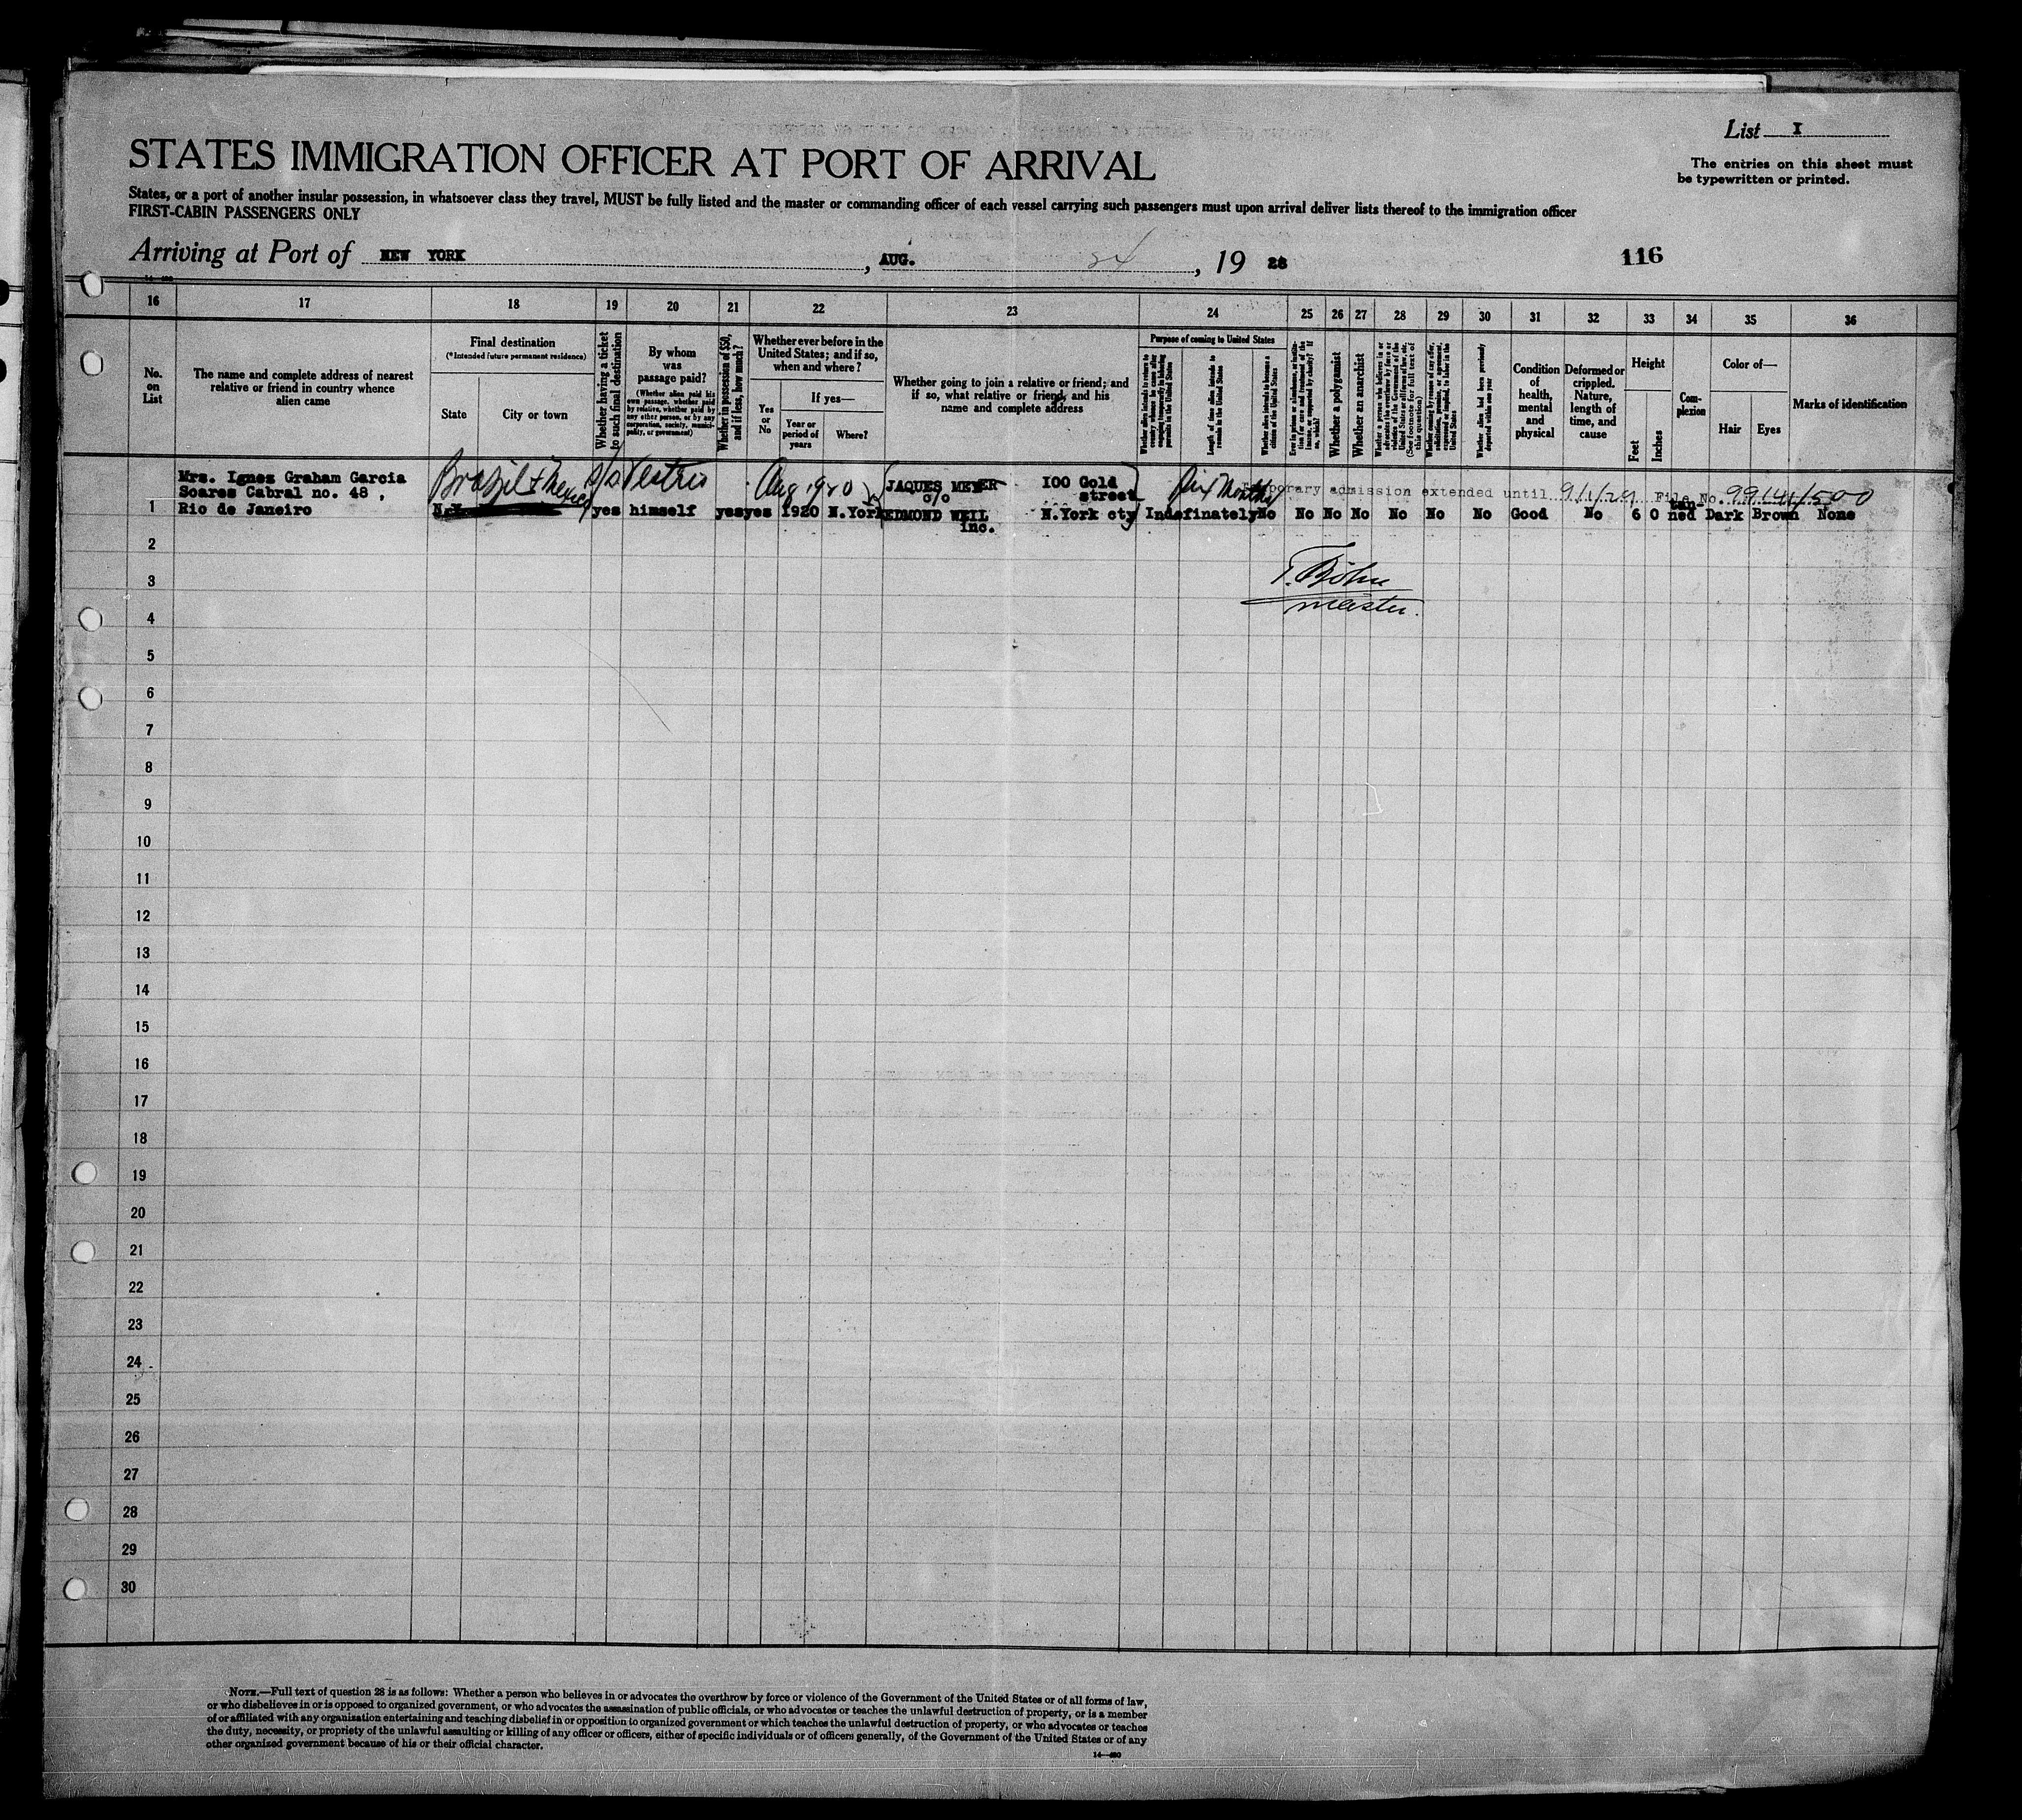 List I
The entries on this sheet must
be typewritten or printed.
STATES IMMIGRATION OFFICER AT PORT OF ARRIVAL
States, or a port of another insular possession, in whatsoever class they travel, MUST be fully listed and the master or commanding officer of each vessel carrying such passengers must upon arrival deliver lists thereof to the immigration officer
FIRST-CABIN PASSENGERS ONLY
Arriving at Port of NEW YORK, AUG. 24, 19 28
116
16 17 18 19 20 21 22 23 24 25 26 27 28 29 30 31 32 33 34 35 36
No.
on
List
The name and complete address of nearest
relative or friend in country whence
alien came
Final destination
(*Intended future permanent residence)
State
City or town
Whether having a ticket
to such final destination
By whom
was
passage paid?
(Whether alien paid his
own passage, whether paid
by relative, whether paid by
any other person, or by any
corporation, society, munici-
pality, or government)
Whether in possession of $50,
and if less, how much?
Whether ever before in the
United States; and if so,
when and where?
Yes
or
No
If yes—
Year or
period of
years
Where?
Whether going to join a relative or friend; and
if so, what relative or friend, and his
name and complete address
Purpose of coming to United States
Whether alien intends to return to
country whence he came after
engaging temporarily in laboring
pursuits in the United States
Length of time alien intends to
remain in the United States
Whether alien intends to become a
citizen of the United States
Whether a polygamist
Whether an anarchist
Whether alien had been previously
deported within one year
Condition
of
health,
mental
and
physical
Deformed or
crippled.
Nature,
length of
time, and
cause
Height
Feet
Inches
Com-
plexion
Color of—
Hair
Eyes
Marks of identification
Mrs. Ignez Graham Garcia
Soares Cabral no. 48 ,
Rio de Janeiro
Brazil + Mexico s/s Vestris Aug 1920
JAQUES MEYER 100 Gold
c/o street
EDMOND WEIL N.York cty
Inc.
Six Months
Temporary admission extended until 9/1/29 File No. 99141/500
1 N.Y. yes himself yes yes 1920 N.York Indefinately No No No No No No No Good No 6 0 tan-
ned Dark Brown None
T. Böhm
master.
2
3
4
5
6
7
8
9
10
11
12
13
14
15
16
17
18
19
20
21
22
23
24
25
26
27
28
29
30
NOTE.—Full text of question 28 is as follows: Whether a person who believes in or advocates the overthrow by force or violence of the Government of the United States or of all forms of law,
or who disbelieves in or is opposed to organized government, or who advocates the assassination of public officials, or who advocates or teaches the unlawful destruction of property, or is a member
of or affiliated with any organization entertaining and teaching disbelief in or opposition to organized government or which teaches the unlawful destruction of property, or who advocates or teaches
the duty, necessity, or propriety of the unlawful assaulting or killing of any officer or officers, either of specific individuals or of officers generally, of the Government of the United States or of any
other organized government because of his or their official character.
14—480